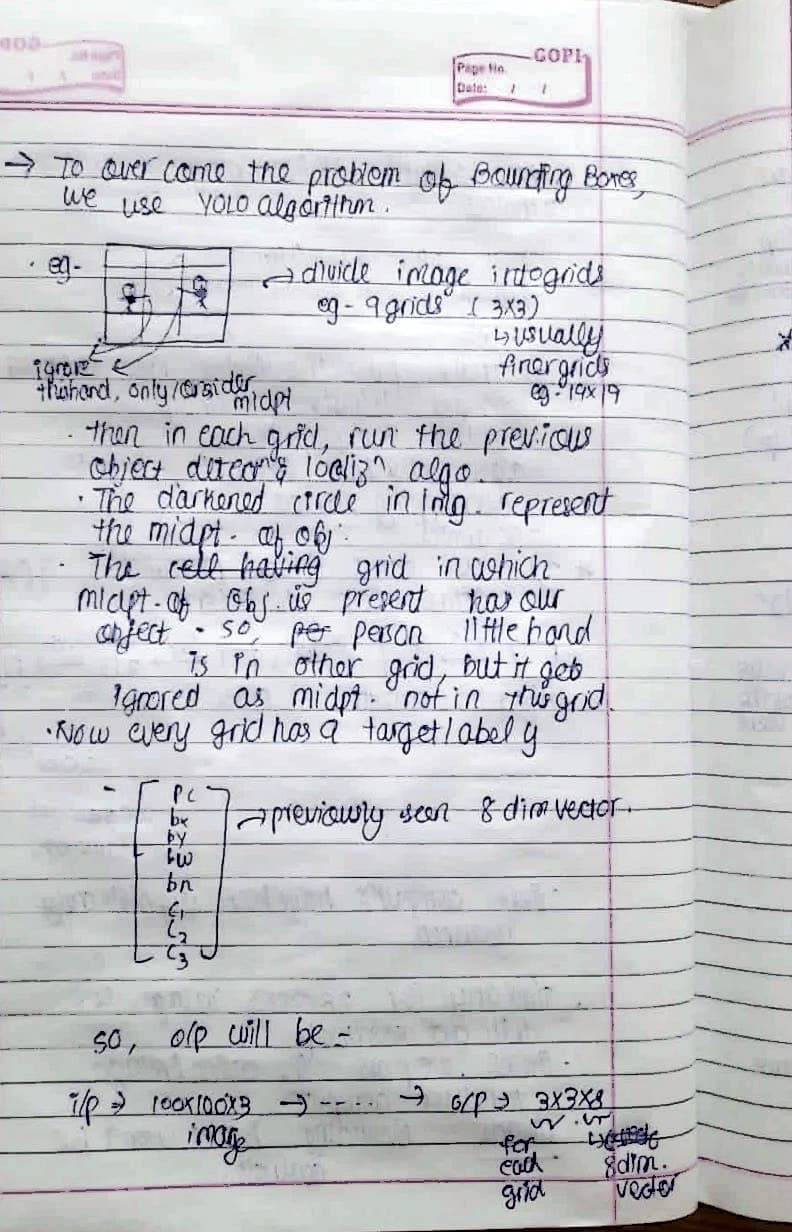 GOPI
Page No.
Date: / /
→ To over come the problem of Bounding Boxes,
we use YOLO algorithm.
· eg-
→ divide image into grids
eg - 9 grids (3x3)
↳ usually
finer grids
eg - 19x19
ignore
the hand, only consider
midpt
· then in each grid, run the previous
object detecn & localizn algo.
· The darkened circle in img. represent
the midpt. of obj.
· The cell having grid in which
midpt. of Obj. is present has our
object. so, per person little hand
is in other grid, but it gets
ignored as midpt. not in this grid.
· Now every grid has a target label y
- [ Pc
bx
by
bw
bh
C1
C2
C3 ]
→ previously seen 8 dim vector.
so, o/p will be -
i/p → 100x100x3 → -- → o/p → 3x3x8
image
for
each
grid
↳
8 dim.
vector